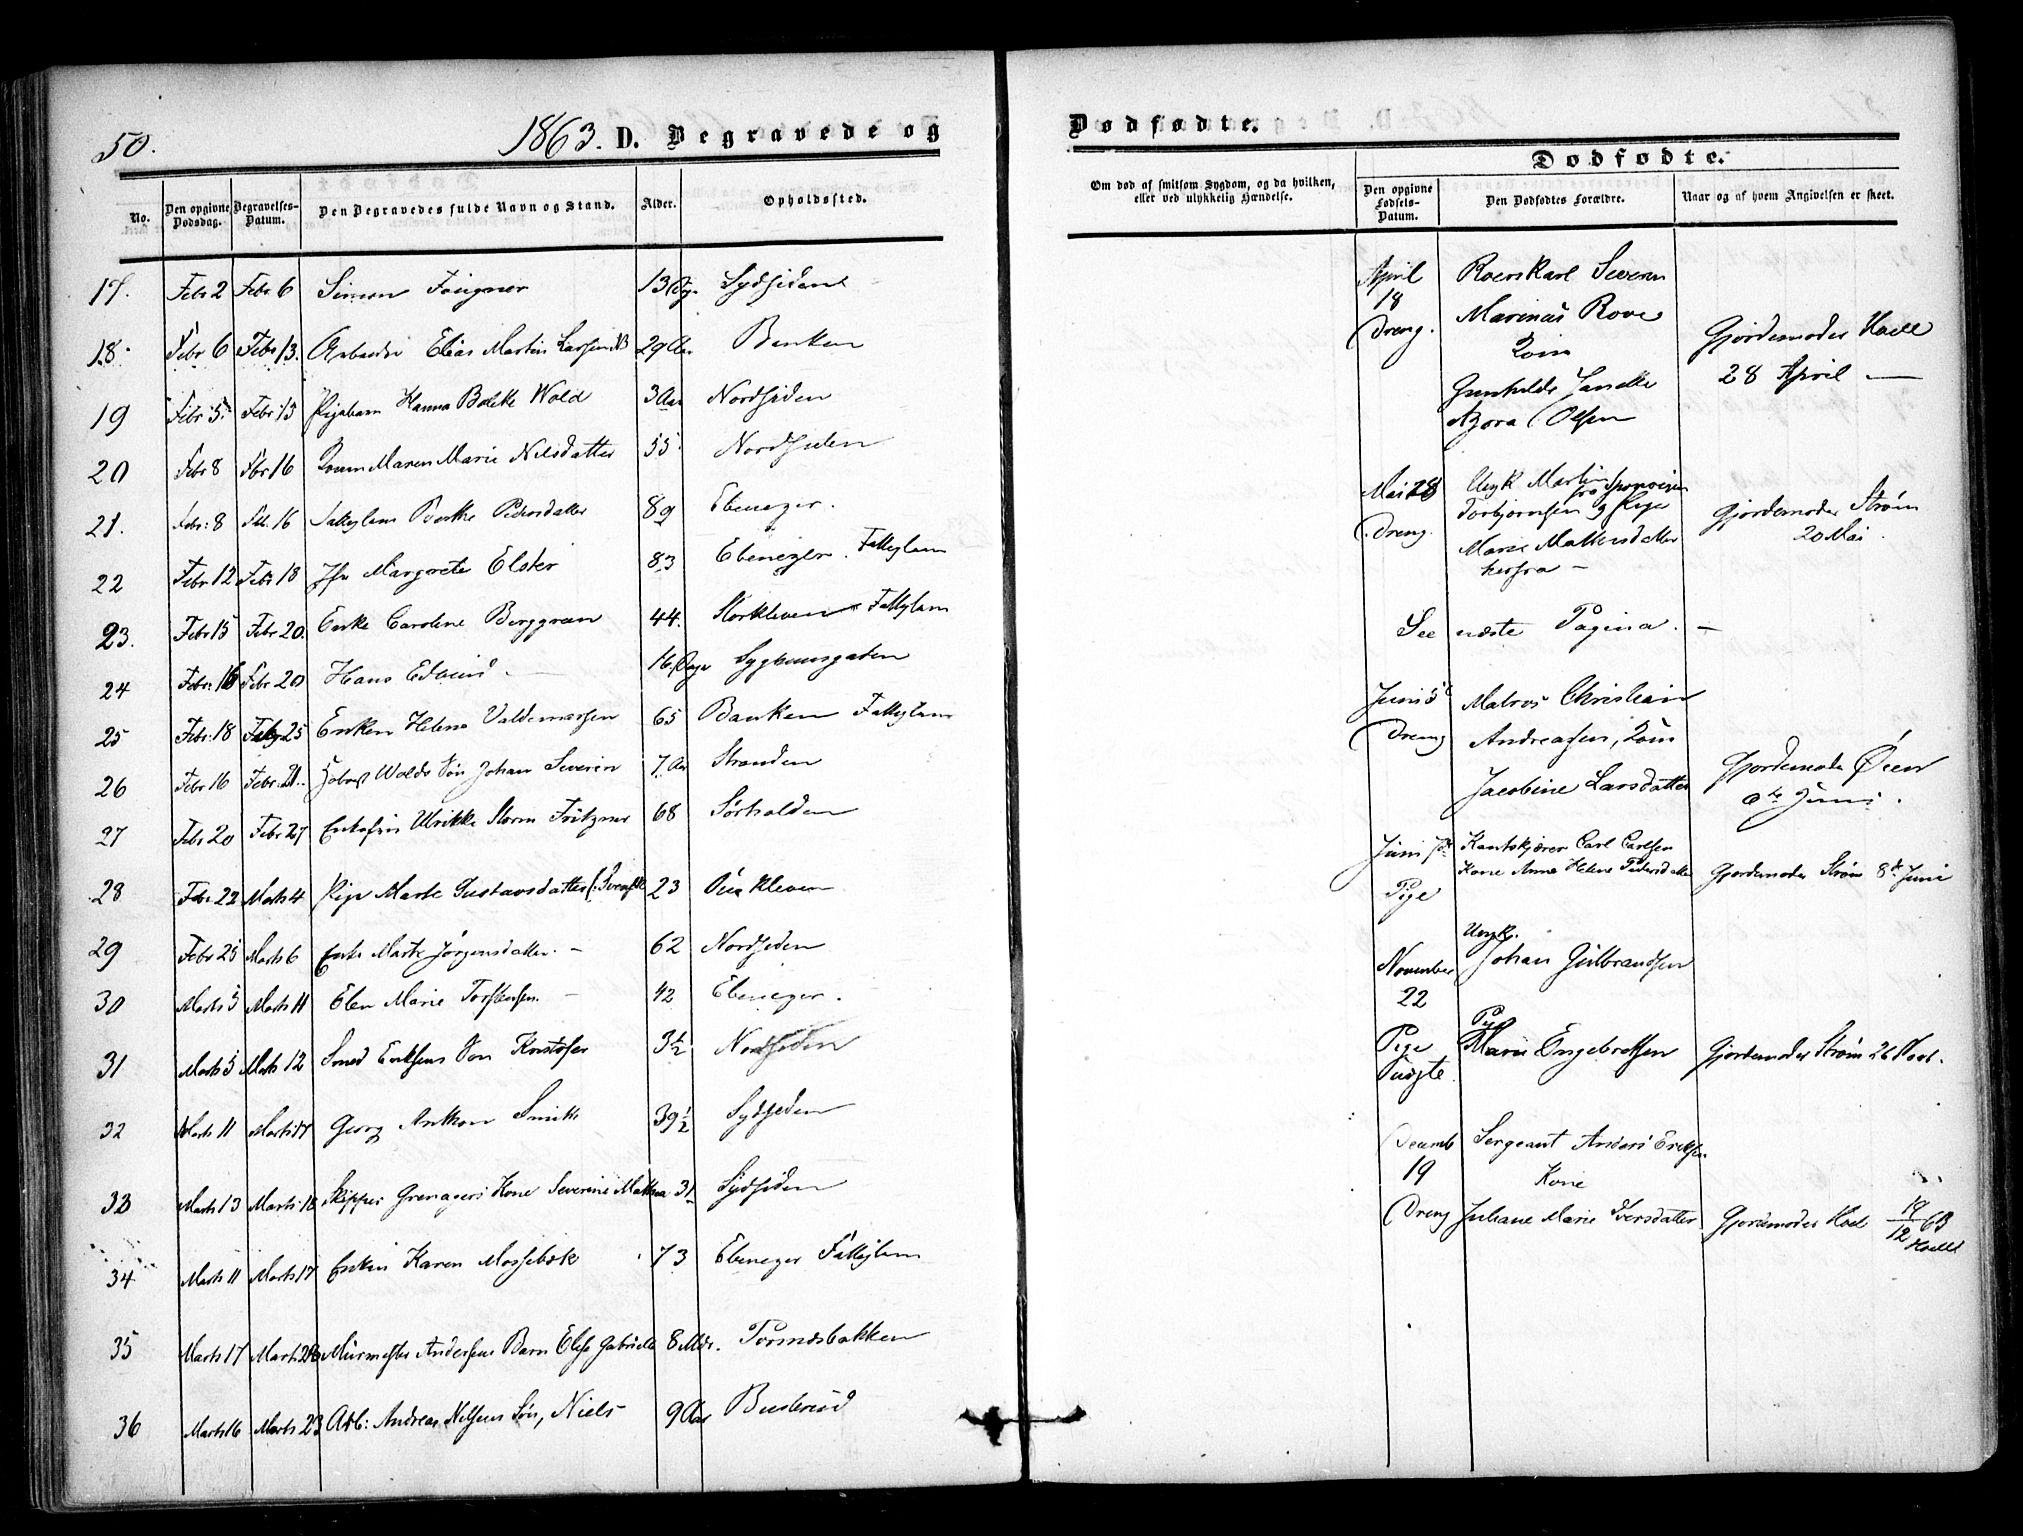 50.
1863. D. Begravede og
No. Den opgivne Dødsdag. Begravelses-Datum. Den Begravedes fulde Navn og Stand. Alder. Opholdssted.
17. Febr 2 Febr 6 Simon 13 Dge Sydsiden
18. Febr 6 Febr 13. Arbeider Elias Martin Larsen 29 Aar Banken
19 Febr 5. Febr 13 Pigebarn Hanna Wold 3 Aar Nordsiden
20 Febr 8 Fbr 16 Maren Marie Nilsdatter 55. Nordsiden
21. Febr: 8 Feb. 16 Fattiglem Pedersdatter 89 Ebeneger.
22 Febr 12 Febr 18 Jfr Margrete Elster 83 Ebenezer. Fattiglem
23. Febr 15 Febr 20. Enke Caroline Berggren 44. Storkleven Fattiglem
24 Febr: 16 Febr 20 Hans Edvind. 16. Dage Sygehuusgaten
25 Febr: 18 Febr 25 Enken Helene Valdemarsen 65 Banken Fattiglem
26 Febr 16 Febr. 21. Wolds Søn Johan Severin 7 Aar Stranden
27 Febr 20 Febr 27 Enkefru Ulrikke Storm Fritzner 68 Sørhalden
28 Febr. 22 Marts 4 Pige Marte Gustavsdatter (Svensk 23 kleven
29 Febr 25 Marts 6 Enke Marte Jørgensdatter. 62 Nordsiden
30 Marts 5 Marts 11 Elen Marie Torstensen. 42 Ebeneger.
31 Marts 5 Marts 12 Smed Eriksens Søn Kristofer 3½ Nordsiden
32 Marts 11 Marts 17 Georg Anthon Smith 39½ Sydsiden
33 Marts 13 Marts 18 Skipper Grenagers Kone Severine Mathea 31 Sydsiden
34 Marts 11 Marts 17 Enken Karen Mossebæk 73 Ebeneger Fattiglem
35 Marts 17 Marts 23 Muurmester Andersens Barn Else Gabrielle 8 Mdr. Tornæsbakken
36 Marts 16 Marts 23 Arb: Andreas Nilsens Søn, Niels 9 Aar Buskerud
Dødfødte.
Dødfødte.
Om død af smitsom Sygdom, og da hvilken,
eller ved ulykkelig Hændelse.
Den opgivne Fødsels-Datum. Den Dødfødtes Forældre. Naar og af hvem Angivelsen er skeet.
April Roerskarl Severin
18 Marinus Rove
Dreng. Kone Gjordemoder Hoell
Gunhilde Janette 28 April
Azora Olsen
Mai 28 Ungk Martin
Torbjørnsen og Pige Gjordemoder Strøm
Dreng. Marie Mathisdatter 20 Mai.
herfra
See næste Pagina.
Juni 5 Matros Christian
Dreng Andreassen, Kone
Jacobine Larsdatter Gjordemoder Øien
Juni.
Juni Carl Carlsen
Pige Kone Anne Helene Pedersdatter Gjordemoder Strøm 8de Juni
Ungk.
November Johan Gulbrandsen
22 Pige
Pige Marie Engebretsen Gjordemoder Strøm 26 Novb.
Decemb Sergeant Anders Eriksen
19 Kone
Dreng Juliane Marie Iversdatter Gjordemoder Hoel 19/12 63
Hoell